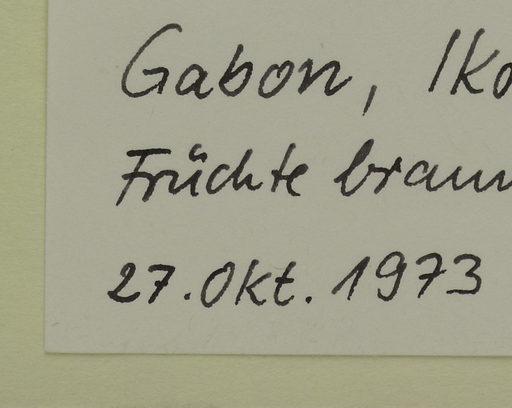 Gabon, Iko
Früchte braun
27. Okt. 1973